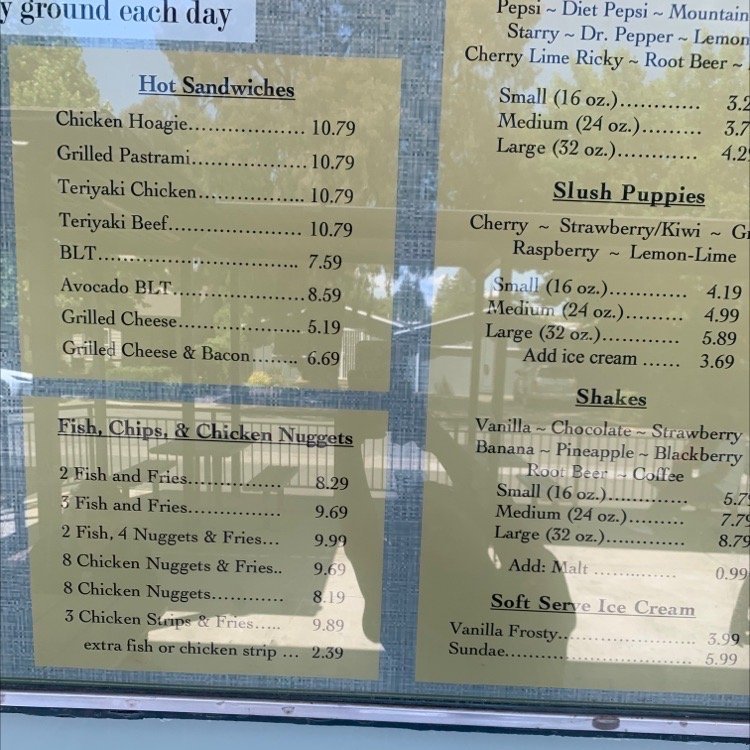 y ground each day
Hot Sandwiches
Chicken Hoagie.................. 10.79
Grilled Pastrami.................. 10.79
Teriyaki Chicken................ 10.79
Teriyaki Beef.................... 10.79
BLT.............................. 7.59
Avocado BLT.................... 8.59
Grilled Cheese.................. 5.19
Grilled Cheese & Bacon........ 6.69
Fish, Chips, & Chicken Nuggets
2 Fish and Fries............... 8.29
3 Fish and Fries............... 9.69
2 Fish, 4 Nuggets & Fries... 9.99
8 Chicken Nuggets & Fries.. 9.69
8 Chicken Nuggets............ 8.19
3 Chicken Strips & Fries..... 9.89
extra fish or chicken strip ... 2.39
Pepsi ~ Diet Pepsi ~ Mountain
Starry ~ Dr. Pepper ~ Lemon
Cherry Lime Ricky ~ Root Beer ~
Small (16 oz.)............ 3.2
Medium (24 oz.)......... 3.7
Large (32 oz.)............ 4.2
Slush Puppies
Cherry ~ Strawberry/Kiwi ~ G
Raspberry ~ Lemon-Lime
Small (16 oz.)............ 4.19
Medium (24 oz.)......... 4.99
Large (32 oz.)............ 5.89
Add ice cream ...... 3.69
Shakes
Vanilla ~ Chocolate ~ Strawberry
Banana ~ Pineapple ~ Blackberry
Root Beer ~ Coffee
Small (16 oz.)............ 5.7
Medium (24 oz.)......... 7.79
Large (32 oz.)............ 8.79
Add: Malt ............... 0.99
Soft Serve Ice Cream
Vanilla Frosty.................. 3.99
Sundae........................... 5.99